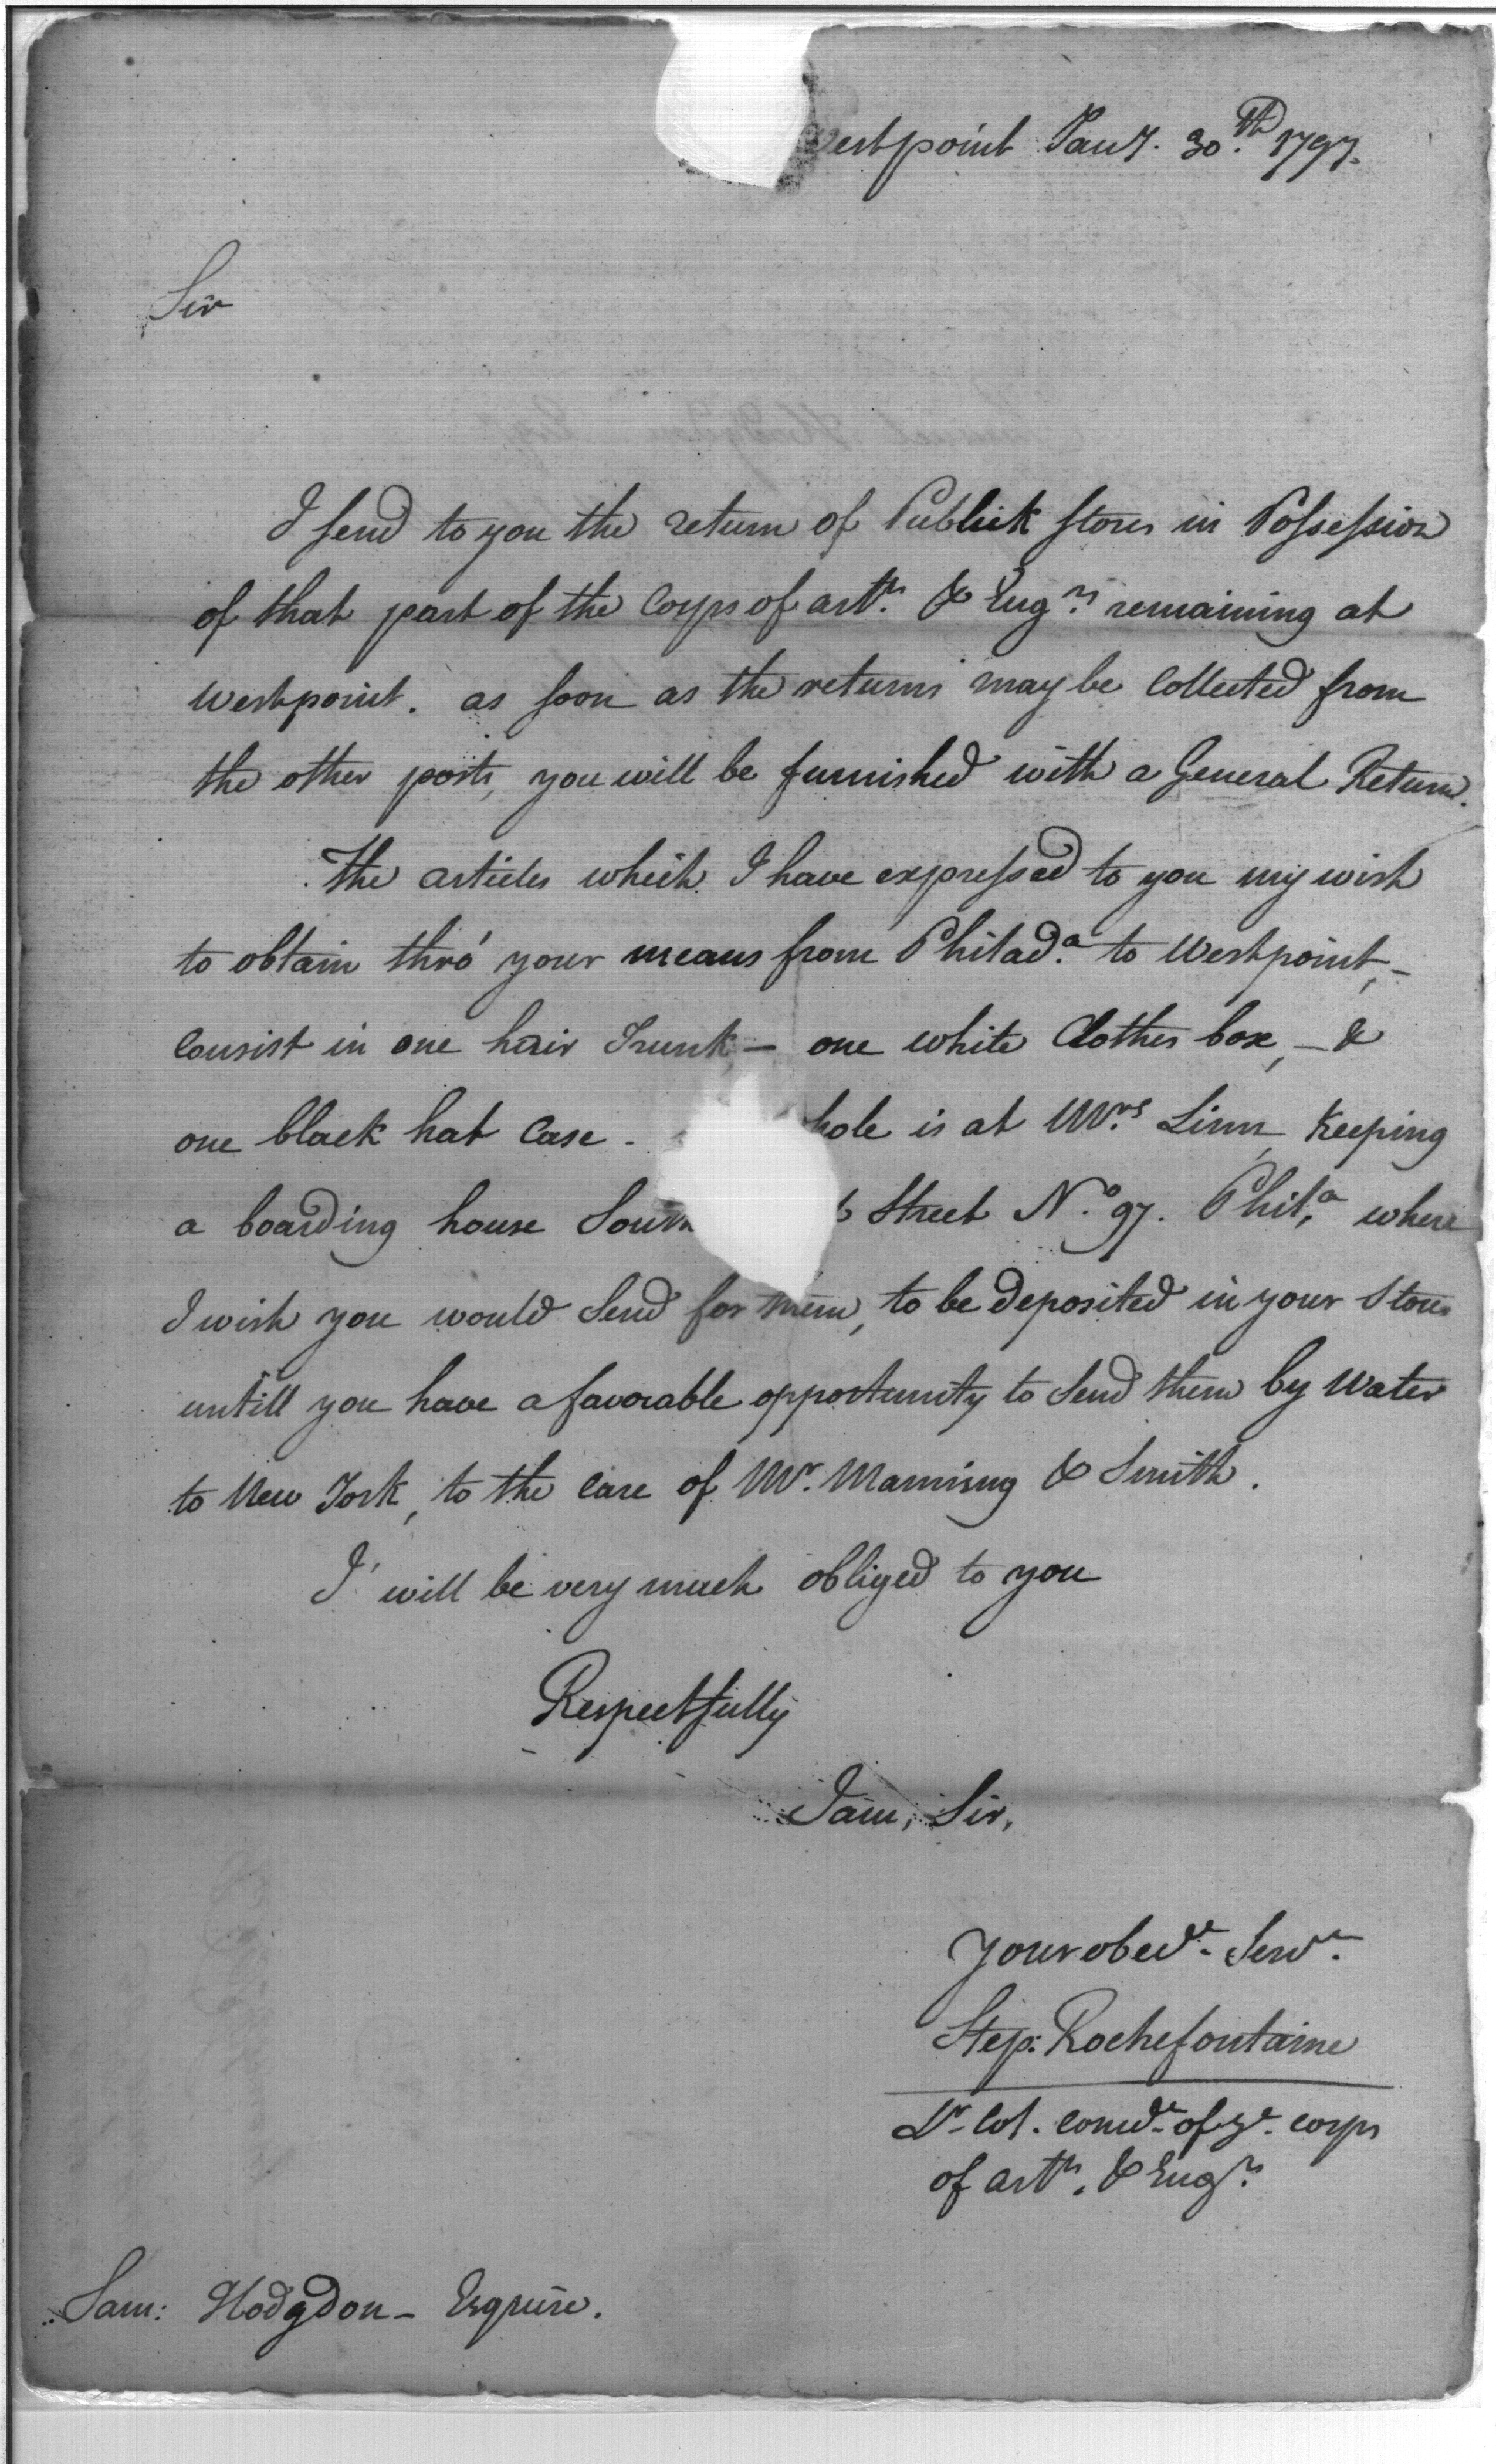 Westpoint Jany. 30.th 1797.
Sir
I send to you the return of Publick stores in Possession
of that part of the Corps of artrs. & Engrs. remaining at
Westpoint. as soon as the returns may be Collected from
the other posts, you will be furnished with a General Return.
The articles which I have expressed to you my wish
to obtain thro' your means from Philada. to Westpoint, –
Consist in one hair Trunk, – one white Clothes box, – &
one black hat Case. hole is at Mrs. Linn, Keeping
a boarding house South Street No. 97. Phila, where
I wish you would Send for them, to be deposited in your Stores
untill you have a favorable opportunity to Send them by Water
to New York, to the Care of Mr. Manning & Smith.
I will be very much obliged to you
Respectfully
I am, Sir,
your obedt. Servt.
Step: Rochefontaine
Lt. Col. Comdt. of ye. corps
of artrs. & Engrs.
Sam: Hodgdon – Esquire.